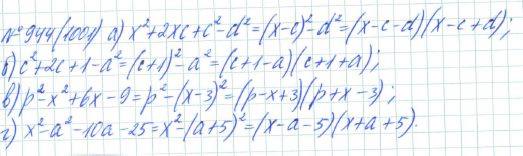 №944(1001) а) x²+2xc+c²-d²=(x-c)²-d²=(x-c-d)(x-c+d);
б) c²+2c+1-a²=(c+1)²-a²=(c+1-a)(c+1+a);
в) p²-x²+6x-9=p²-(x-3)²=(p-x+3)(p+x-3);
г) x²-a²-10a-25=x²-(a+5)²=(x-a-5)(x+a+5).